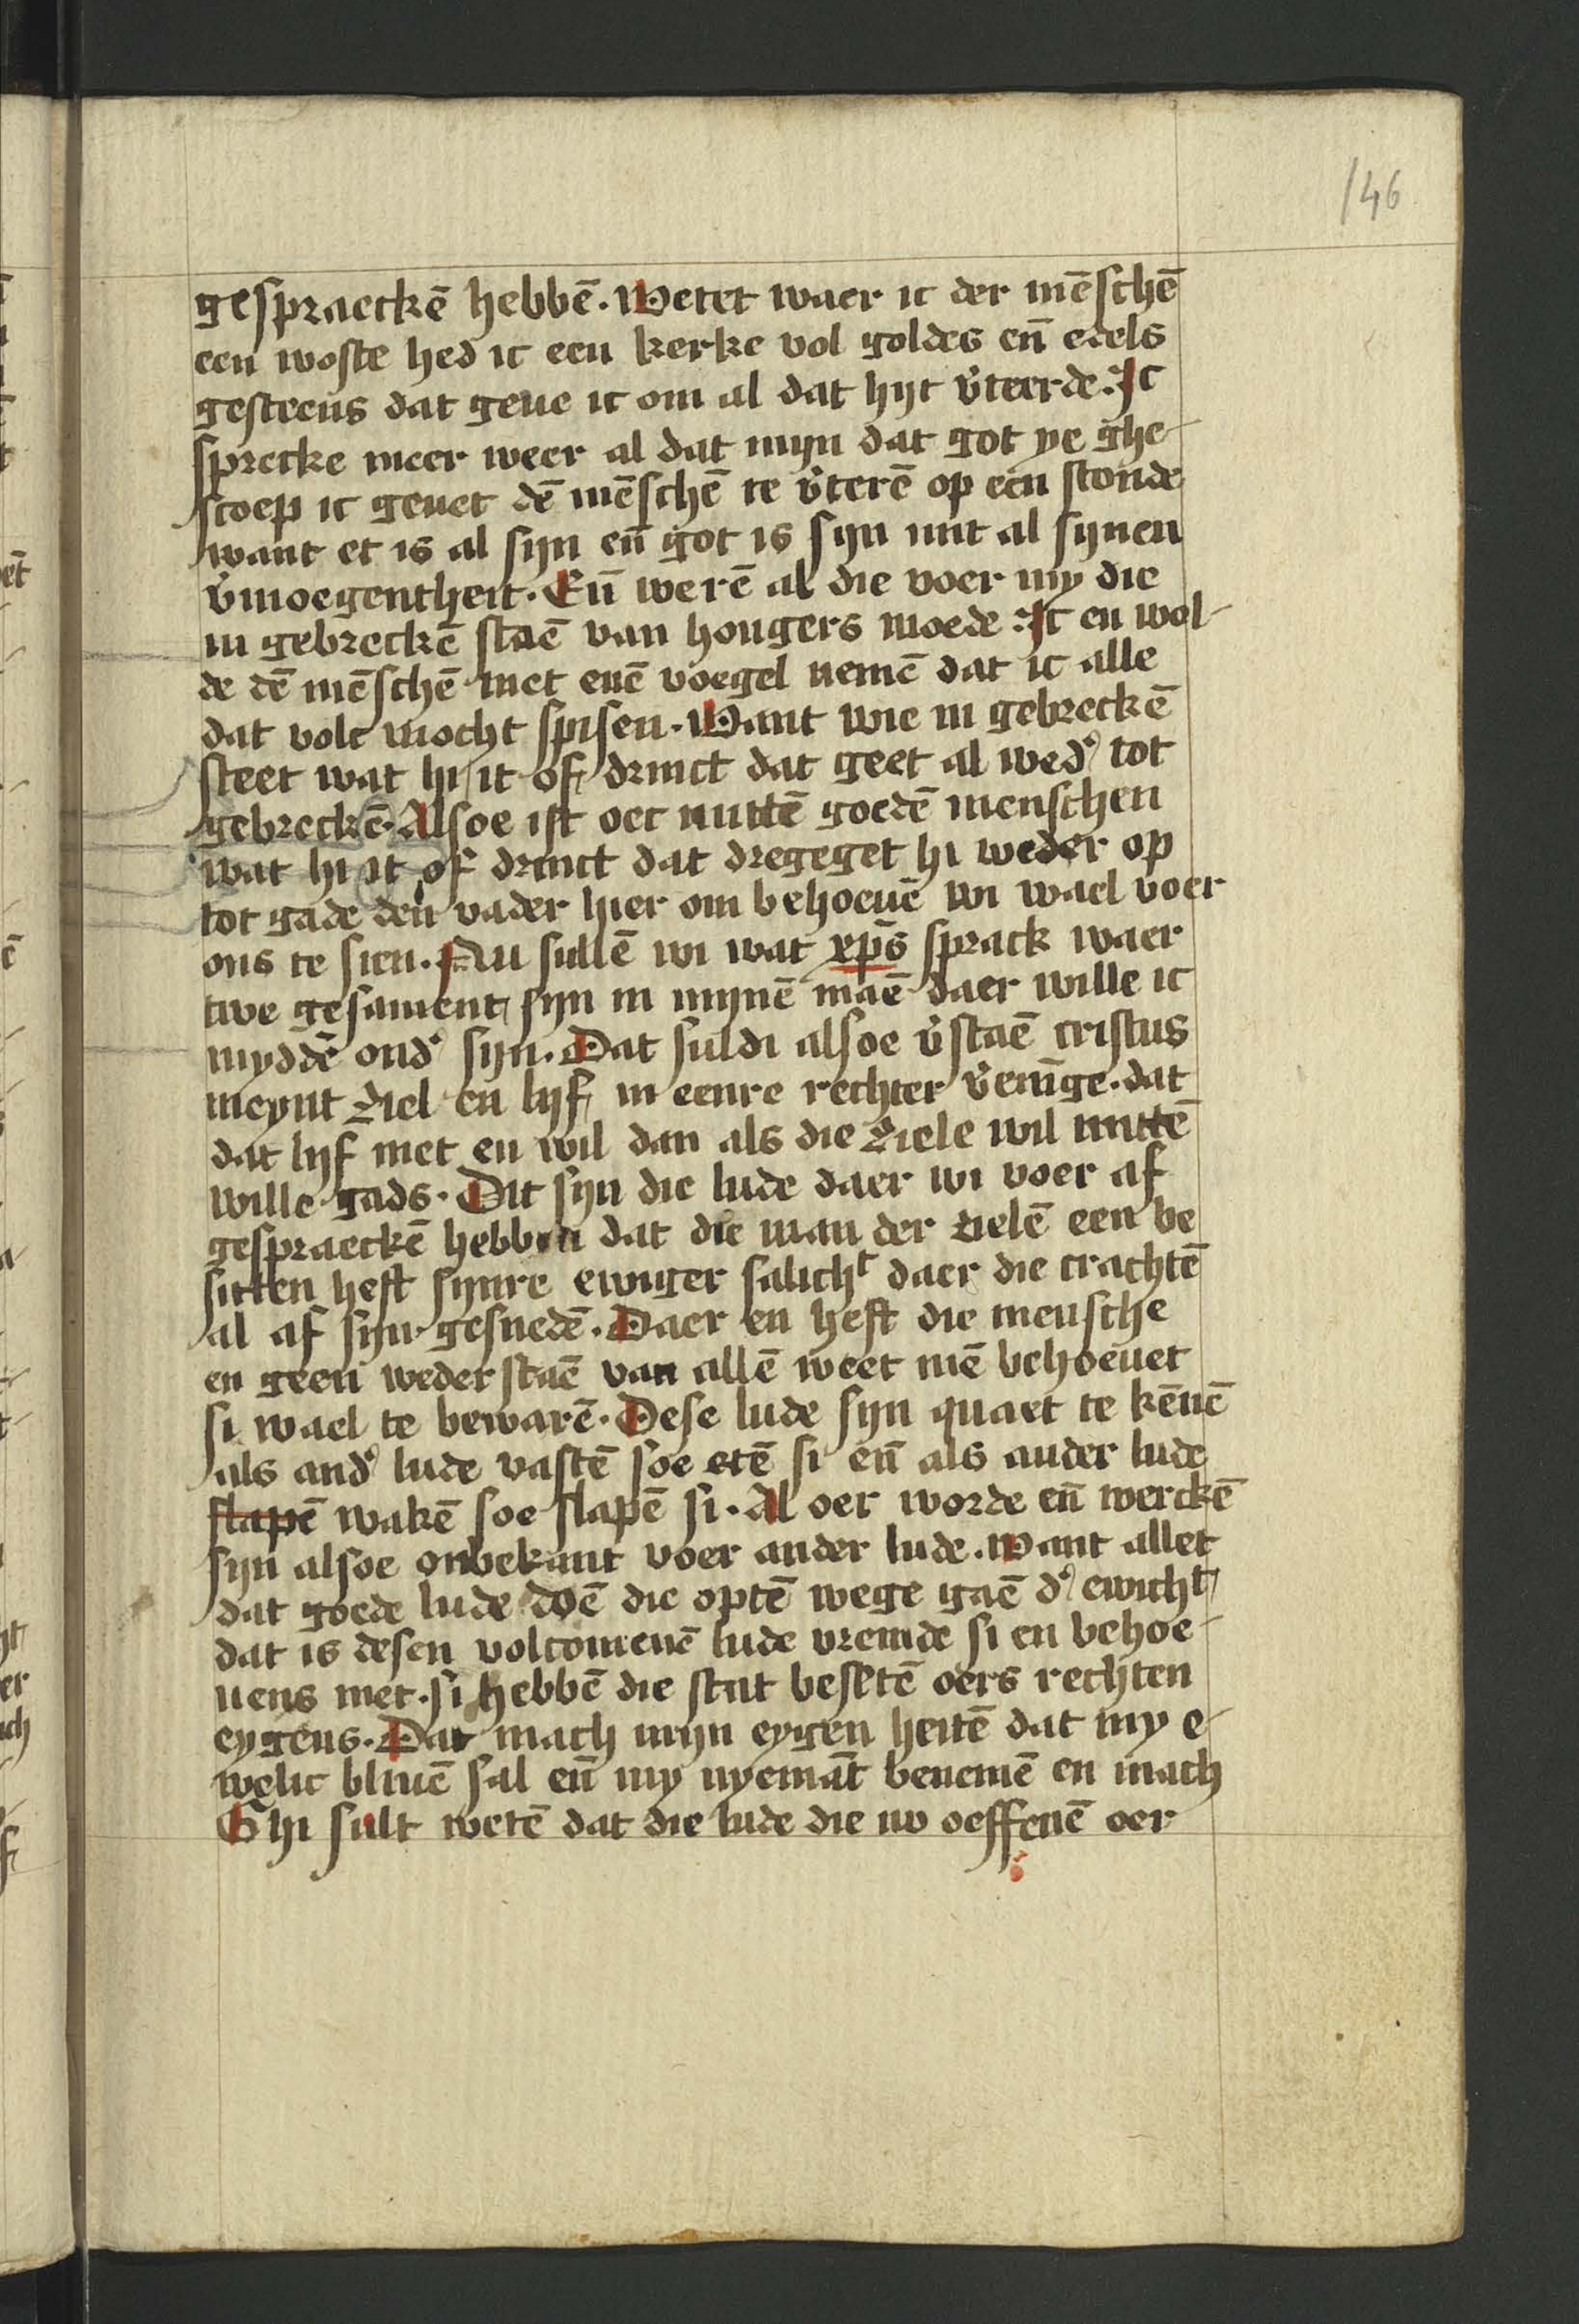 146
gespraeckē hebbē. Wetet waer ic der mēschē
een woste hed ic een kerke vol goldes en̄ edels
gesteens dat geue ic om al dat hijt v̄teerde. Ic
sprecke meer weer al dat mijn dat got ye ghe-
scoep ic geuet dē mēschē te v̄terē op een stonde
want et is al sijn en̄ got is sijn mit al sijnen
v̄moegentheit. En̄ werē al die voer my die
in gebreckē staē van hongers noede. Ic en wol-
de dē mēschē niet enē voegel nemē dat ic alle
dat volc mocht spisen. Want wie in gebreckē
steet wat hi it of drinct dat geet al wed' tot
gebreckē. Alsoe ist oec mittē goedē menschen
wat hi it of drinct dat dregeget hi weder op
tot gade den vader hier om behoeuē wi wael voer
ons te sien. Nu sullē wi wat xp̄s sprack waer
twe gesament sijn in mijnē maē daer wille ic
myddē ond' sijn. Dat suldi alsoe v̄staē cristus
meynt ziel en lijf in eenre rechter v̄enīge. dat
dat lijf niet en wil dan als die ziele wil mittē
wille gads. Dit sijn die lude daer wi voer af
gespraeckē hebben dat die man der zielē een be
sitten heft sijnre ewiger salicht daer die crachtē
al af sijn gesnedē. Daer en heft die mensche
en geen wederstaē van allē weet mē behoeuet
si wael te bewarē. Dese lude sijn quaet te kēnē
als and' lude vastē soe etē si en̄ als ander lude
slapē wakē soe slapē si. Al oer worde en̄ werckē
sijn alsoe onbekant voer ander lude. Want allet
dat goede lude doē die optē wege gaē d' ewicht
dat is desen volcomenē lude vremde si en behoe-
uens niet. si hebbē die stat besetē oers rechten
eygens. Dat mach mijn eygen heitē dat my e-
welic bliuē sal en̄ my nyemāt benemē en mach
Ghi sult wetē dat die lude die nv oeffenē oer